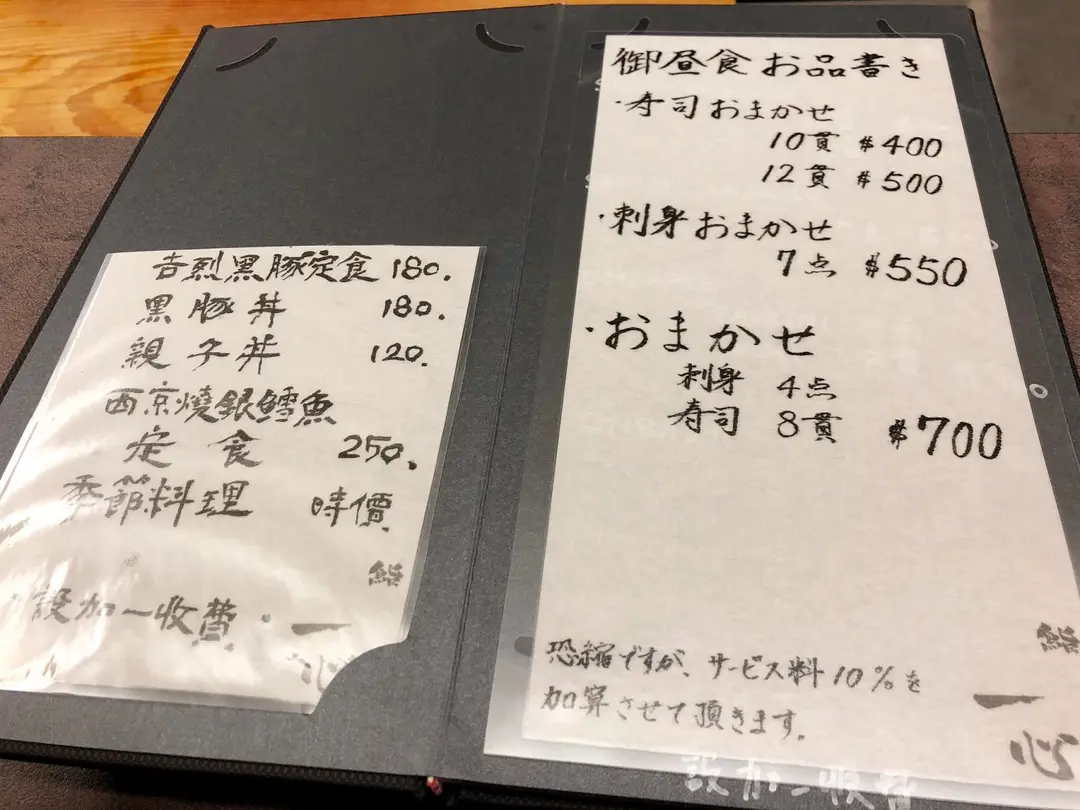 吉烈黒豚定食 180.
黒豚丼 180.
親子丼 120.
西京燒銀鱈魚
定食 250.
季節料理 時價
鮨
設加一收費.
一
心
御昼食 お品書き
・寿司おまかせ
10貫 $400
12貫 $500
・刺身おまかせ
7点 $550
・おまかせ
刺身 4点
寿司 8貫 $700
恐縮ですが、サービス料10%を
加算させて頂きます。
鮨
一
心
設加一收費